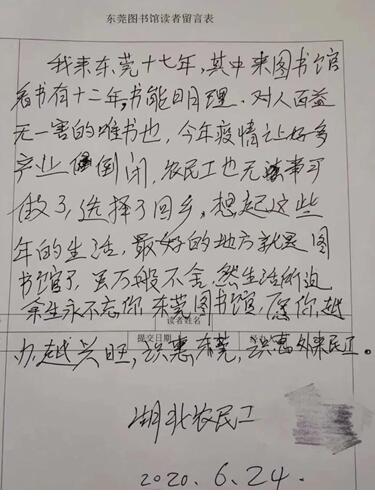 东莞图书馆读者留言表
我来东莞十七年，其中来图书馆
看书有十二年，书能明理，对人百益
无一害的唯书也，今年疫情让好多
产业倒闭，农民工也无事可
做了，选择了回乡，想起这些
年的生活，最好的地方就是图
书馆了，虽万般不舍，然生活所迫
余生永不忘你，东莞图书馆，愿你越
读者姓名
办越兴旺，识惠东莞，识惠外来民工。
提交日期
湖北农民工
2020.6.24.